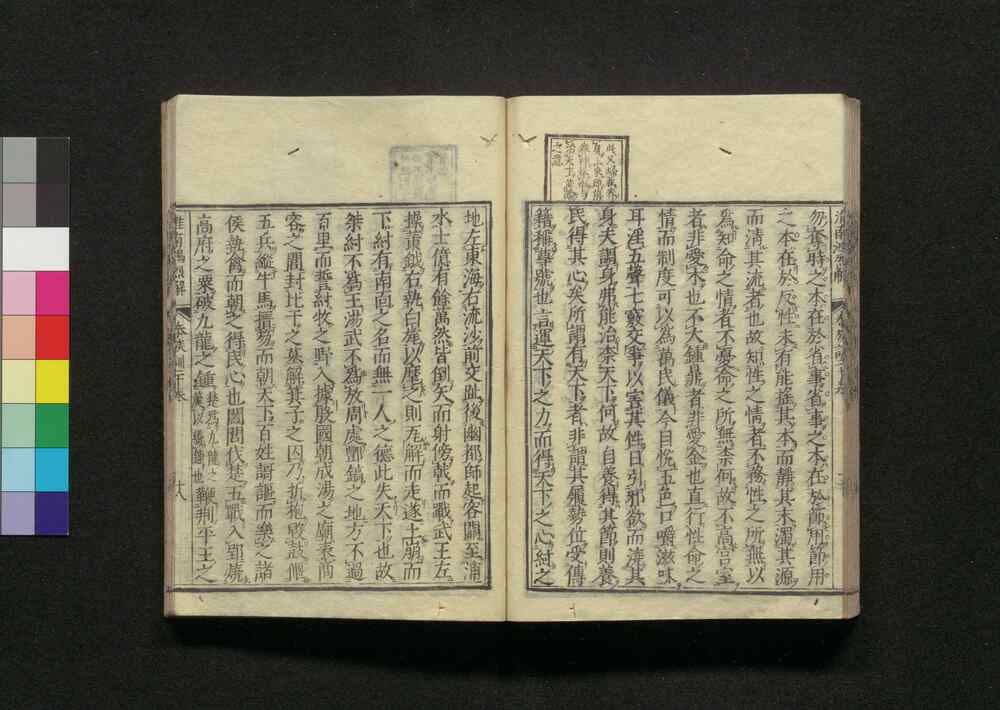 勿奪時之本在於省事省事之本在於節用節用
之本在於反性未有能搖其本而靜其末濁其源
而清其流者也故知性之情者不務性之所無以
爲知命之情者不憂命之所無柰何故不高宮室
者非愛木也不大鍾鼎者非愛金也直行性命之
情而制度可以爲萬民儀今目悅五色口嚼滋味
耳淫五聲七竅交爭以害其性日引邪欲而澆其
身夫調身弗能治柰天下何故自養得其節則養
民得其心矣所謂有天下者非謂其履勢位受傳
籍稱尊號也言運天下之力而得天下之心紂之
地左東海右流沙前交趾後幽都師起容關至浦
水士億有餘萬然皆倒矢而射傍戟而戰武王左
操黃鉞右執白旄以麾之則瓦解而走遂土崩而
下紂有南面之名而無一人之德此失天下也故
桀紂不爲王湯武不爲放周處酆鎬之地方不過
百里而誓紂牧之野入據殷國朝成湯之廟表商
容之閭封比干之墓解箕子之囚乃折枹毀鼓偃
五兵縱牛馬搢笏而朝天下百姓謌謳而樂之諸
侯執禽而朝之得民心也闔閭伐楚五戰入郢燒
高府之粟破九龍之鍾楚爲九龍之簴以縣鍾也鞭荆平王之